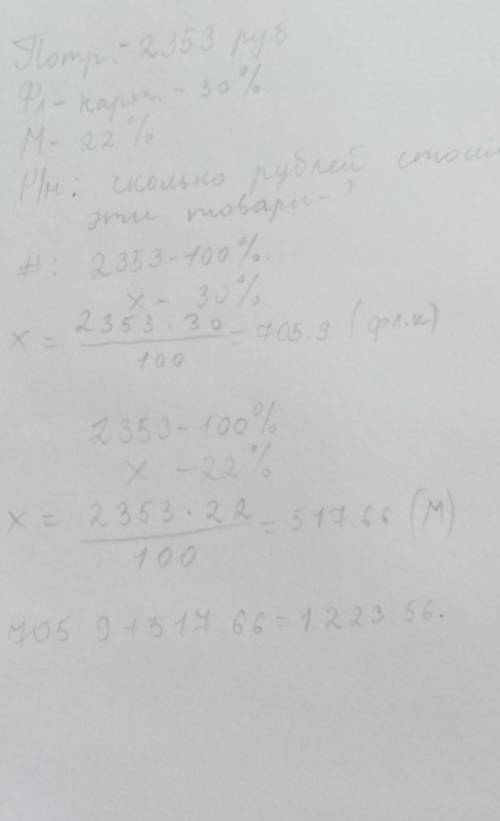 Потр. - 2353 руб
Фл - карт. - 30%
М - 22%
Р/н: сколько рублей стоил
эти товары - ?
#: 2353 - 100%.
х - 30%
х = 2353 · 30 / 100 = 705.9 (фл.к)
2353 - 100%
х - 22%
х = 2353 · 22 / 100 = 517.66 (М)
705.9 + 517.66 = 1223.56.